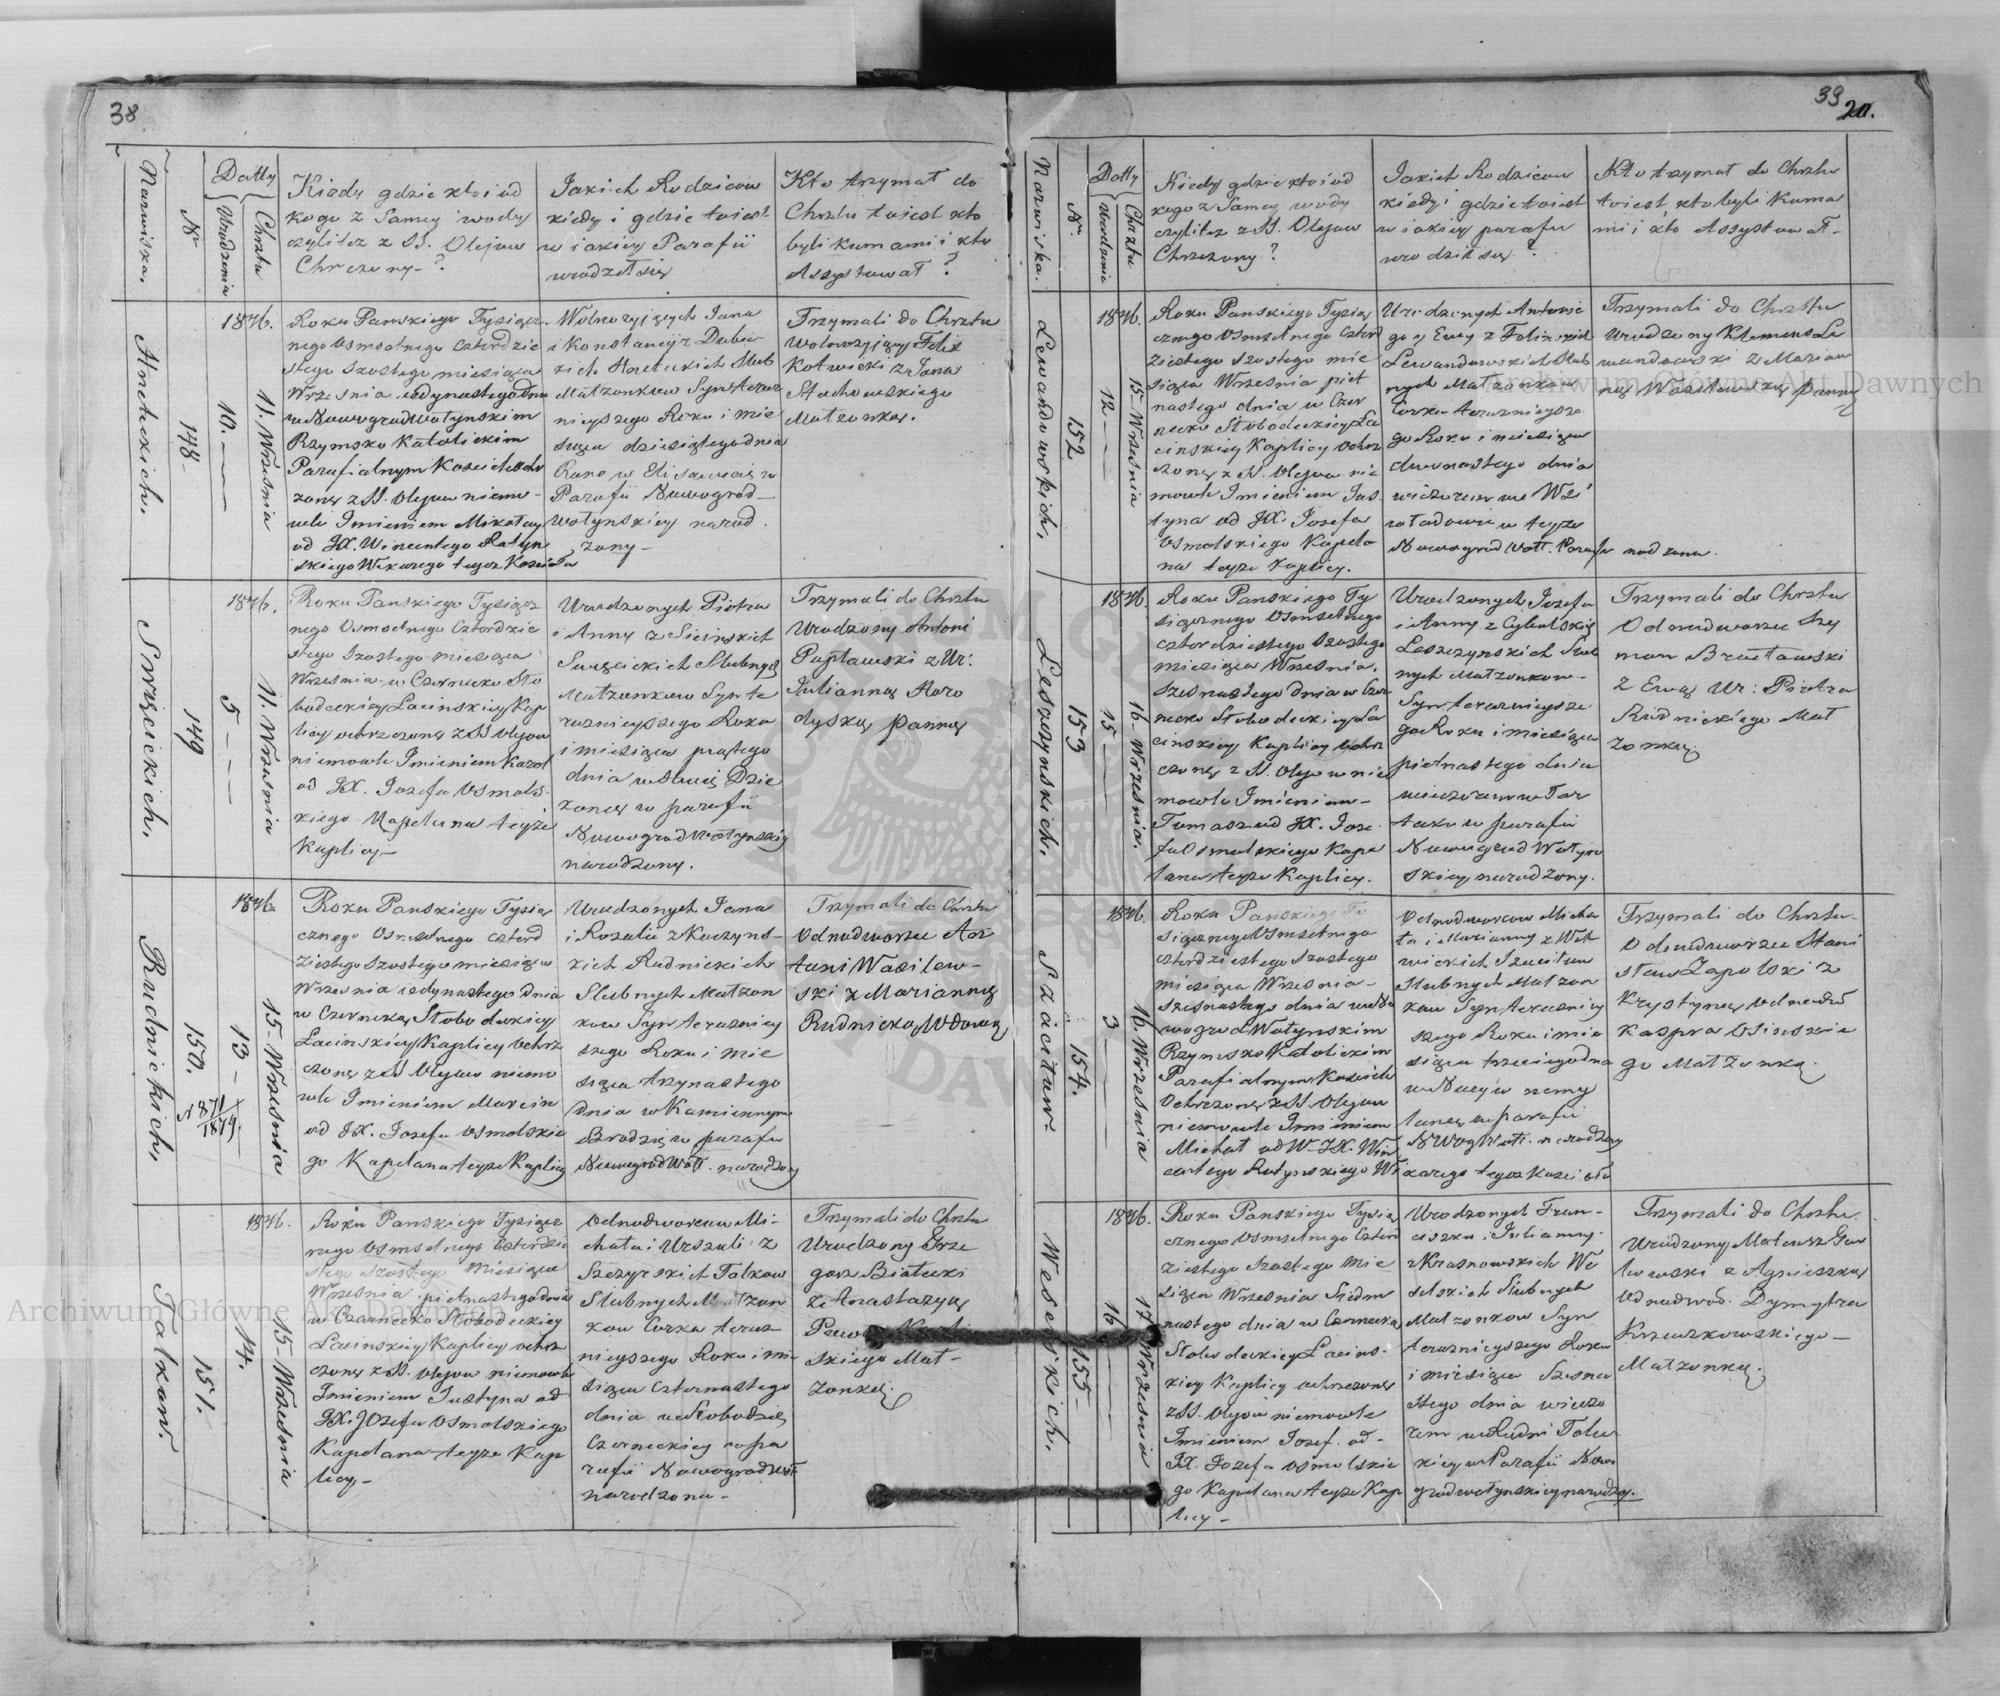 38
Nazwiska.
Nr
Datty
Urodzenia
Chrztu
Kiedy gdzie kto i od
kogo z Samey wody
czyli też z SS. Olejow
Chrczony-?
Jakich Rodzicow
kiedy i gdzie toiest
w jakiey Parafii
urodzełsię
Kto trzymał do
Chrztu toiest kto
byli kumami i kto
Assystował?
148
1846.
10.
11. Wrzesnia
Roku Panskiego Tysiącz
nego Osmsetnego Czterdzie
stego Szostego miesiąca
Wrzesnia iedynastego dnia
w Nowogradwołynskim
Rzymsko Katolickim
Parafialnym Kosciele ochr
zone z SS. Olejow niemo-
wle Imieniem Mikołay
od JX. Wincentego Ratyn
skiego Wikarego tegoz Koscioła
Wolnozyjących Jana
i Konstancyi z Dubic
kich Slub
Matzonkow Syn teraz
nieyszego Roku i mie
siąca dziesiątego dnia
Rano w
Parafii Nowogrod-
wołynskiey narod
zony-
Trzymali do Chrztu
Wolnozyjący Felix
Kotwicki z Jana
Stachowskiego
Matzonką.
Swięcickich.
149
1846.
5
11. Wrzesnia
Roku Panskiego Tysiącz
nego Osmsetnego Czterdzie
stego Szostego miesiąca
Wrzesnia w Czernecko Sło
bodeckiey Lacinskiey Kap
licy ochrzczone z SS Olejow
niemowle Imieniem Karol
od JX. Jozefa Osmols
kiego Kapelana teyże
Kaplicy-
Urodzonych Piotra
i Anny z Sicinskich
Swięcickich Slubnych
Matzonkow Syn te
raznieyszego Roku
i miesiąca piątego
dnia w
w parafii
Nowogradwołynskiey
narodzony.
Trzymali do Chrztu
Urodzony Antoni
Popławski z Ur:
Julianną Horo
dyską Panną
Rudnickich,
150.
N 871/1879.
1846.
13
15- Wrzesnia
Roku Panskiego Tysią
cznego Osmsetnego Czterd
ziestego Szostego miesiąca
Wrzesnia iedynastego dnia
w Czernecko Słobodeckiey
Lacinskiey Kaplicy ochrz
czone z SS Olejow niemo
wle Imieniem Marcin
od JX. Jozefa Osmolskie
go Kapelana teyze Kaplicy
Urodzonych Jana
i Rozalii z Kaczyns-
kich Rudnickich
Slubnych Matzon
kow Syn terazniey
szego Roku i mie
siąca trzynastego
dnia w Kamiennym
Brodzie w parafii
Nowogradwoł. narodzony
Trzymali do Chrztu
Odnodworzec An
toni Wasilew-
ski z Marianną
Rudnicką Wdową
Talkow.
151.
1846.
14.
15- Wrzesnia
Roku Panskiego Tysiącz
nego Osmsetnego Czterdzie
stego Szostego Miesiąca
Wrzesnia piętnastego dnia
w Czarnecko Słobodeckiey
Lacinskiey Kaplicy ochrz
czone z SS. Olejow niemowle
Imieniem Justyna od
JX. Jozefa Osmolskiego
Kapelana teyze Kap
licy-
Odnodworcow Mi-
chała i Urszuli z
Szczyrskich Talkow
Slubnych Matzon
kow Corka teraz
nieyszego Roku i mie
siąca Czternastego
dnia w Słobodzie
Czerneckiey w pa
rafii Nowogradwoł
narodzona-
Trzymali do Chrztu
Urodzony Grze
gorz Białecki
z Anastazyią
skiego Mat-
zonką.
39
20.
Nazwiska.
Nr.
Datty
Urodzenia
Chrztu
Kiedy gdzie kto i od
kogo z Samey wody
czyli też z SS. Olejow
Chrzczony?
Jakich Rodzicow
kiedy i gdzie toiest
w jakiey parafii
urodził się?
Kto trzymał do Chrztu
toiest kto byli Kuma
mi i kto Assystowa ł-
Lewandowskich,
152
1846.
12
15- Wrzesnia
Roku Panskiego Tysią
cznego Osmsetnego Czterd
ziestego szostego mie
siąca Wrzesnia piet
nastego dnia w Czer
necko Słobodeckiey La
cinskiey Kaplicy ochrz
czone z SS. Olejow nie
mowle Imieniem Jus
tyna od JX. Jozefa
Osmolskiego Kapela
na teyze Kaplicy.
Urodzonych Antonie
go i Ewy z Felinskich
Lewandowskich Slub
nych Matzonkow
Corka teraznieysze
go Roku i miesiąca
dwonastego dnia
wieczorem we Wło
w teyze
Nowogradwoł. Parafii narodzona.
Trzymali do Chrztu
Urodzony Klemens Le
wandowski z Marian
ną Wasilewską Panną
Leszczynskich.
153
1846.
15
16. Wrzesnia.
Roku Panskiego Ty
siącznego Osmsetnego
czterdziestego Szostego
miesiąca Wrzesnia.
szesnastego dnia w Czer
necko Słobodeckiey La
cinskiey Kaplicy ochrz
czone z SS. Olejow nie
mowle Imieniem-
Tomasz od JX. Joze
fa Osmolskiego Kape
lana teyze Kaplicy.
Urodzonych Jozefa
i Anny z Cybulskich
Leszczynskich Slub
nych Matzonkow-
Syn teraznieysze
go Roku i miesiąca
pietnastego dnia
wieczorem w Tar
taku w parafii
Nowogrod Wołyn
skiey narodzony.
Trzymali do Chrztu
Odnodworzec Szy
mon Bracławski
z Ewą Ur: Piotra
Rudnickiego Mat
zonką
Szacitow.
154.
1846.
3
16. Wrzesnia
Roku Panskiego Ty
siącznego Osmsetnego
czterdziestego Szostego
miesiąca Wrzesnia-
szesnastego dnia w No
wogrod Wołynskim
Rzymsko Katolickim
Parafialnym Kosciele
Ochrczone z SS. Olejow
niemowle Imieniem
Michał od W. JX. Win
centego Ratynskiego Wi
karego tegoz Kosciołа
Odnodworcow Micha
ła i Marianny z Wit
wickich Szacitow
Slubnych Matzon
kow Syn terazniey
szego Roku i mie
siąca trzeciego dnia
w parafii
NWogWoł. narodzony
Trzymali do Chrztu-
Odnodworzec Stani
sław Zapolski z
Krystyną Odnodwo
Kaspra Osinskie
go Matzonką.
Weselskich.
155-
1846.
16
17 Wrzesnia
Roku Panskiego Tysią
cznego Osmsetnego Czterd
ziestego Szostego Mie
siąca Wrzesnia Siedm
nastego dnia w Czernecko
Słobodeckiey Lacins-
kiey Kaplicy ochrzczone
z SS. Olejow niemowle
Imieniem Jozef. od-
JX. Jozefa Osmolskie
go Kapelana teyze Kap
licy-
Urodzonych Fran-
ciszka i Julianny-
z Krasnowskich We
selskich Slubnych
Matzonkow Syn
teraznieyszego Roku
i miesiąca Szesna
stego dnia wieczo
rem w Rudni
w Parafii Nowo
gradwołynskiey narodzony.
Trzymali do Chrztu.
Urodzony Mateusz
z Agnieszką
Odnodwo. Dymytra
Krzeczkowskiego-
Matzonką.
Archiwum Główne Akt Dawnych
Archiwum Główne Akt Dawnych